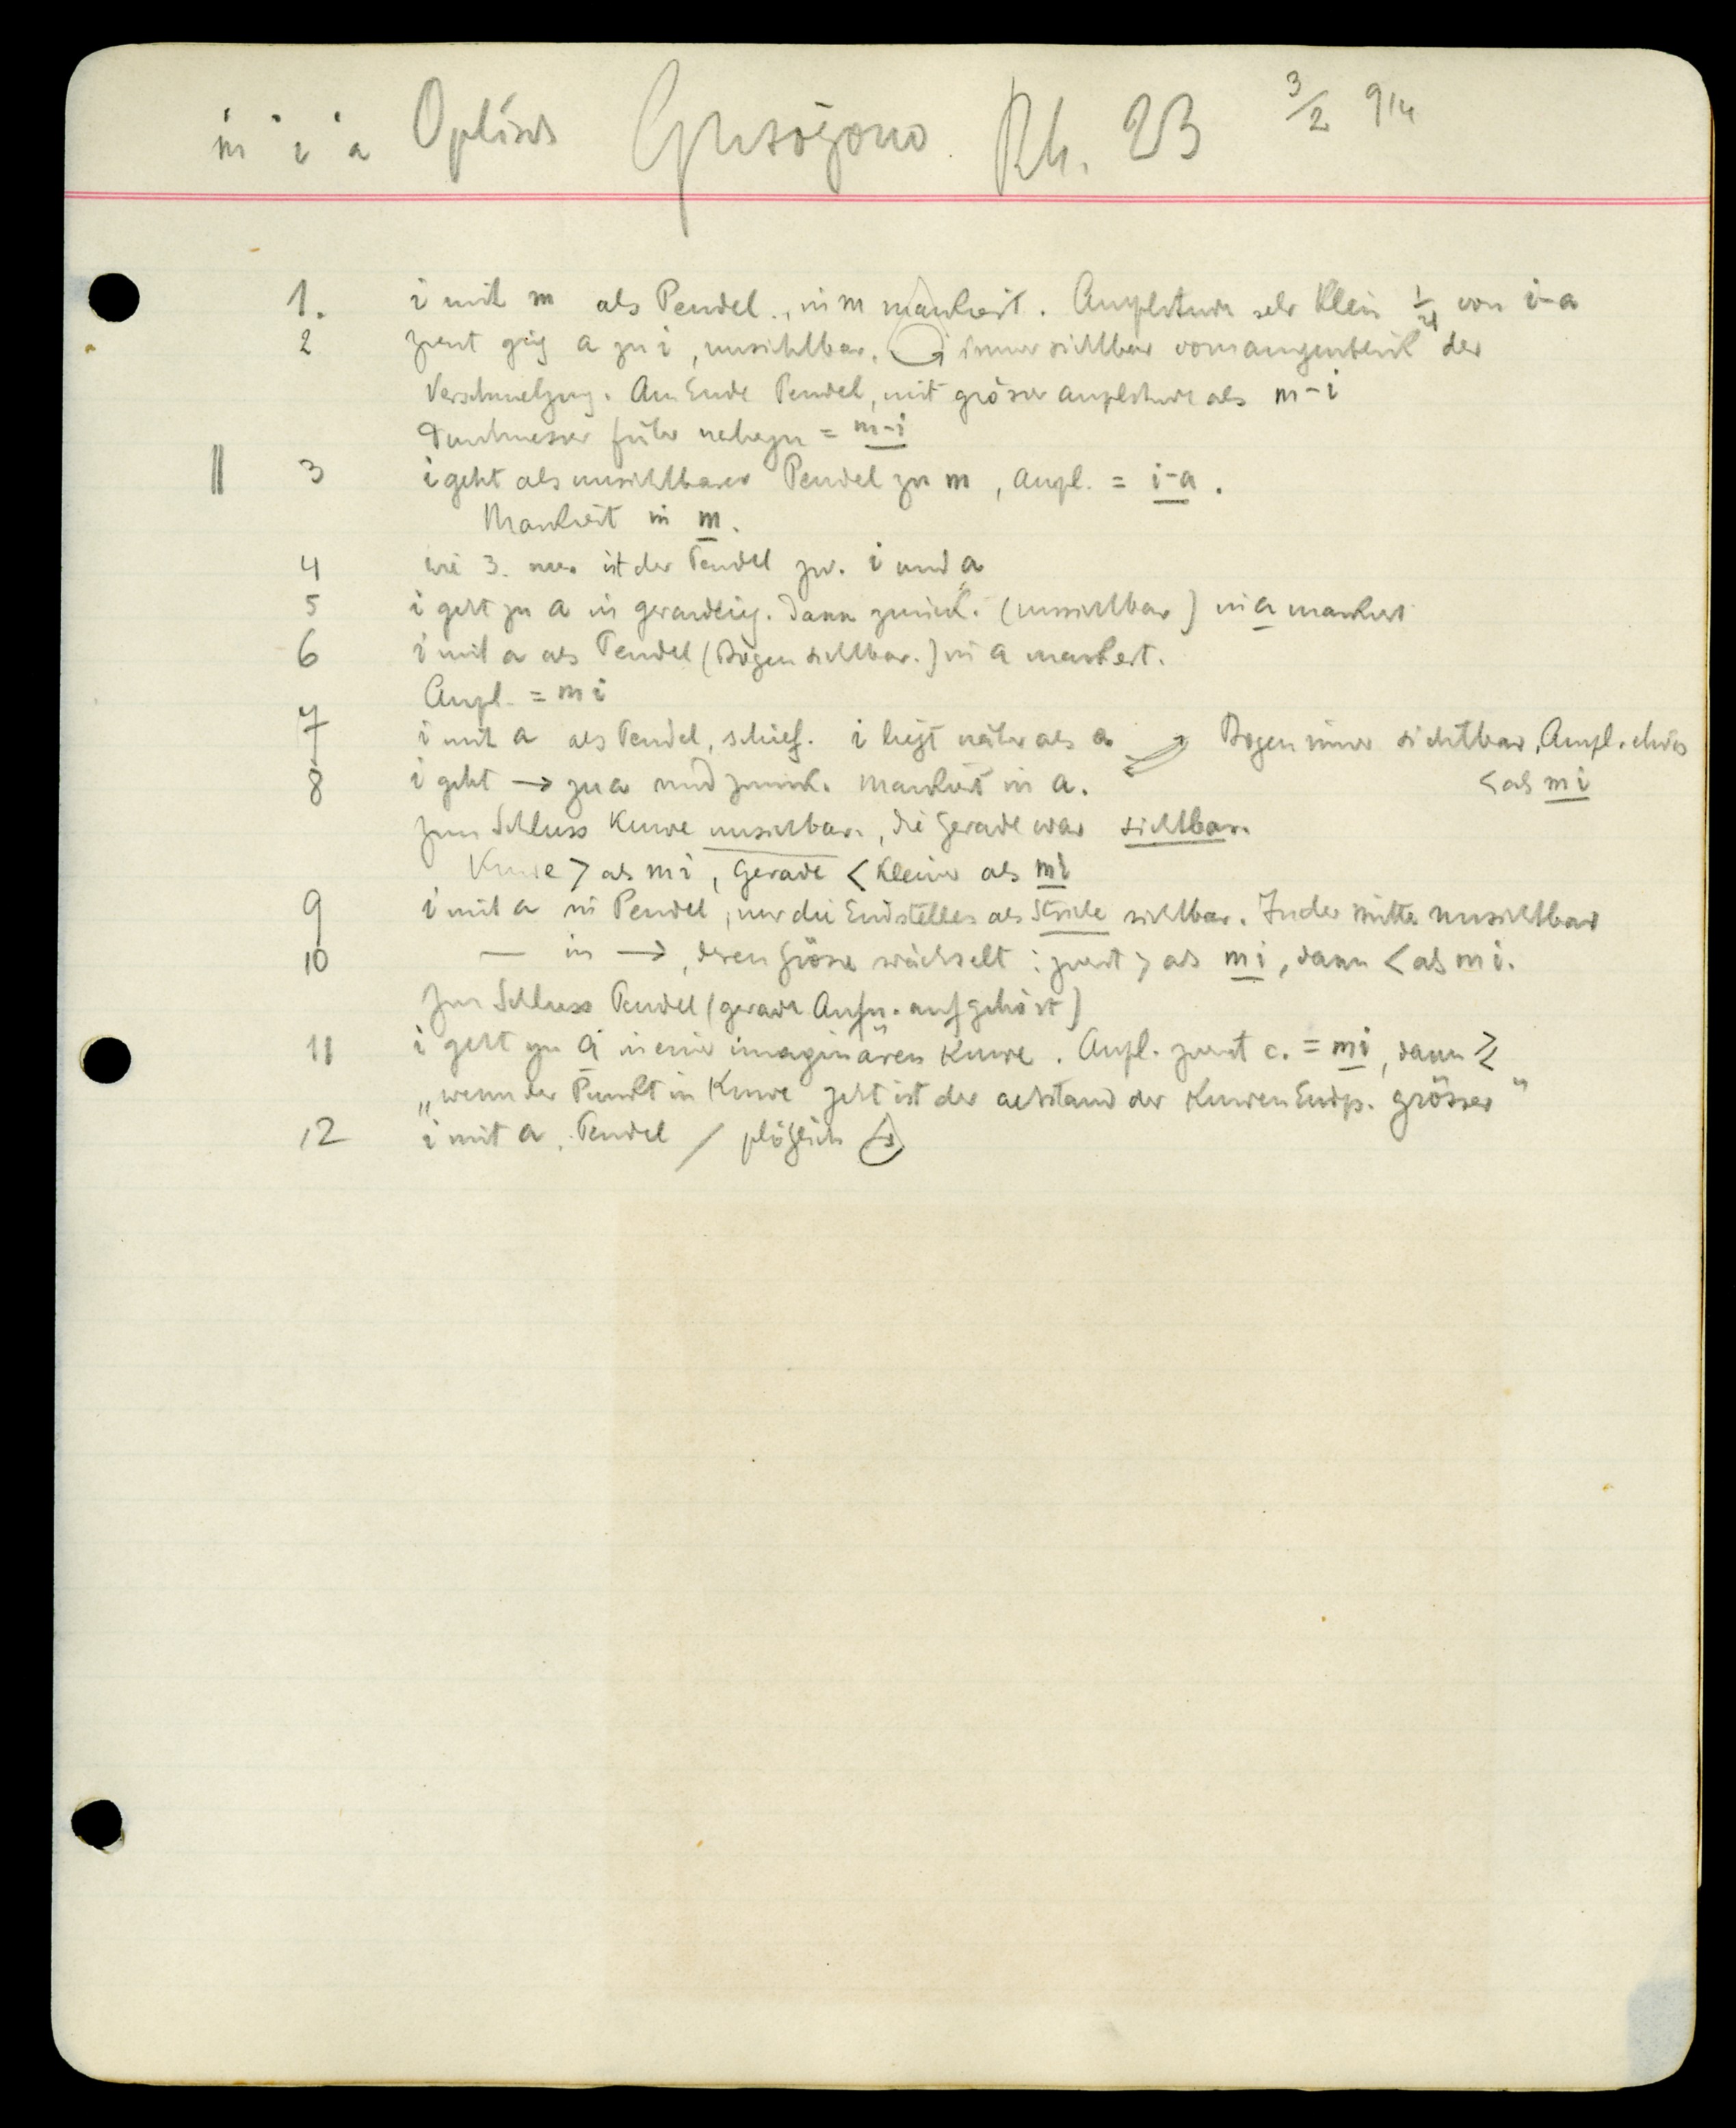 m i a Optisch Rh. 23 3/2 914
1. i mit m als Pendel., in m markiert. Amplitude sehr klein 1/4 von i-a
2 zuerst ging a zu i, unsichtbar. immer sichtbar vom augenblick der
Verschmelzung. Am Ende Pendel, mit gröser amplitude als m-i
Durchmesser früher nahezu = m-i
3 i geht als unsichtbarer Pendel zu m, Ampl. = i-a.
Markiert in m.
4 wie 3. nur ist der Pendel zw. i und a
5 i geht zu a in geradlinig. dann zurück. (unsichtbar) in a markiert
6 i mit a als Pendel (Bogen sichtbar.) in a markiert.
Ampl. = m i
7 i mit a als Pendel, schief. i liegt näher als a. Bogen immer sichtbar, Ampl. etwas
< als m i
8 i geht → zu a und zurück. Markiert in a.
zum Schluss Kurve unsichtbar., die Gerade war sichtbar.
Kurve > als m i, Gerade < kleiner als m i
9 i mit a in Pendel, nur die Endstellen als Striche sichtbar. In der mitte unsichtbar
10 — in →, deren Gröse wächselt : zuerst > als m i, dann < als m i.
Zum Schluss Pendel (gerade aufgehört)
11 i geht zu a in einer imaginären Kurve. Ampl. zuerst c. = m i, dann ≥
„wenn der Punkt in Kurve geht ist der abstand der Kurven Endp. grösser"
12 i mit a. Pendel / plötzlich